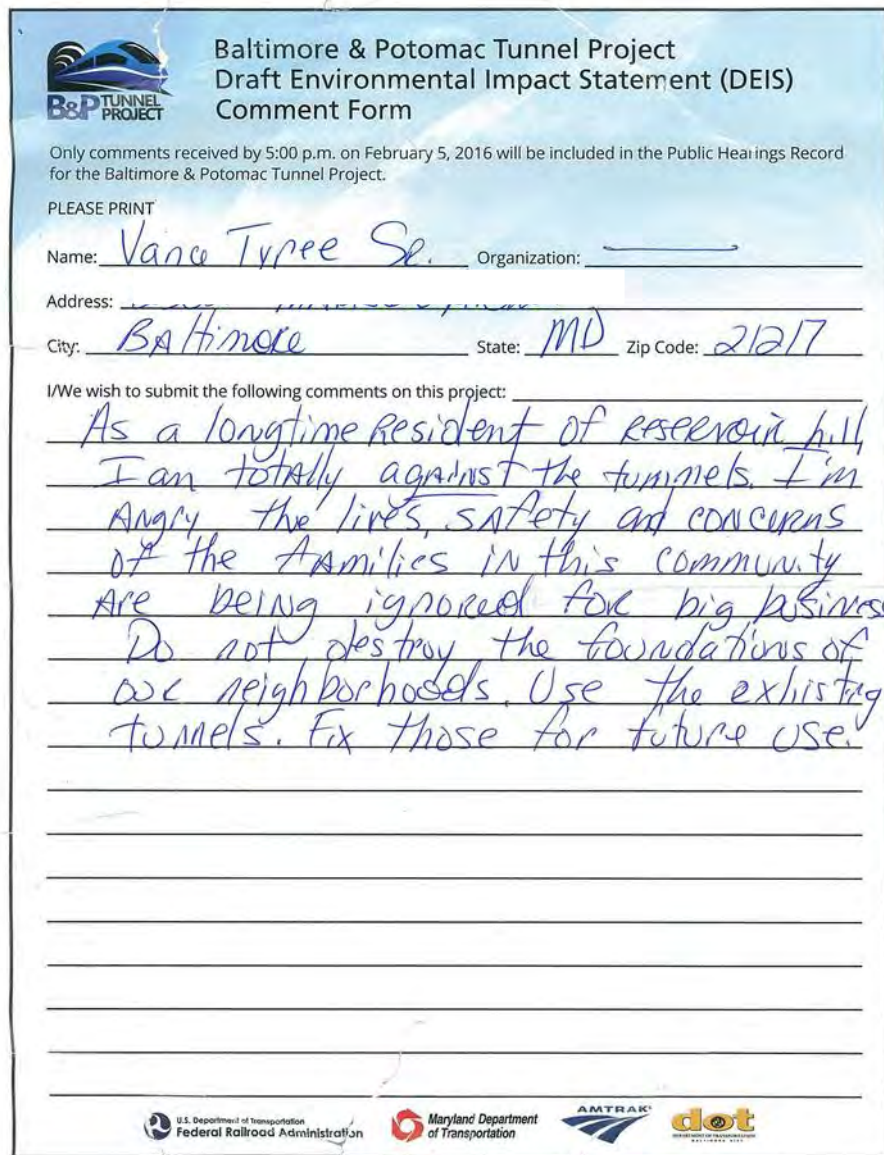 Baltimore & Potomac Tunnel Project
Draft Environmental Impact Statement (DEIS)
Comment Form
B&P TUNNEL PROJECT
Only comments received by 5:00 p.m. on February 5, 2016 will be included in the Public Hearings Record
for the Baltimore & Potomac Tunnel Project.
PLEASE PRINT
Name: Vance Tyree Sr. Organization:
Address:
City: BAltimore State: MD Zip Code: 21217
I/We wish to submit the following comments on this project:
As a longtime Resident of Reservoir hill,
I am totAlly agAinst the tunnels. I'm
Angry the lives, sAfety and concerns
of the fAmilies in this community
Are being ignored for big business
Do not destroy the foundations of
our neighborhoods. Use the exhisting
tunnels. Fix those for future use.
U.S. Department of Transportation
Federal Railroad Administration
Maryland Department
of Transportation
AMTRAK
dot
DEPARTMENT OF TRANSPORTATION
BALTIMORE CITY